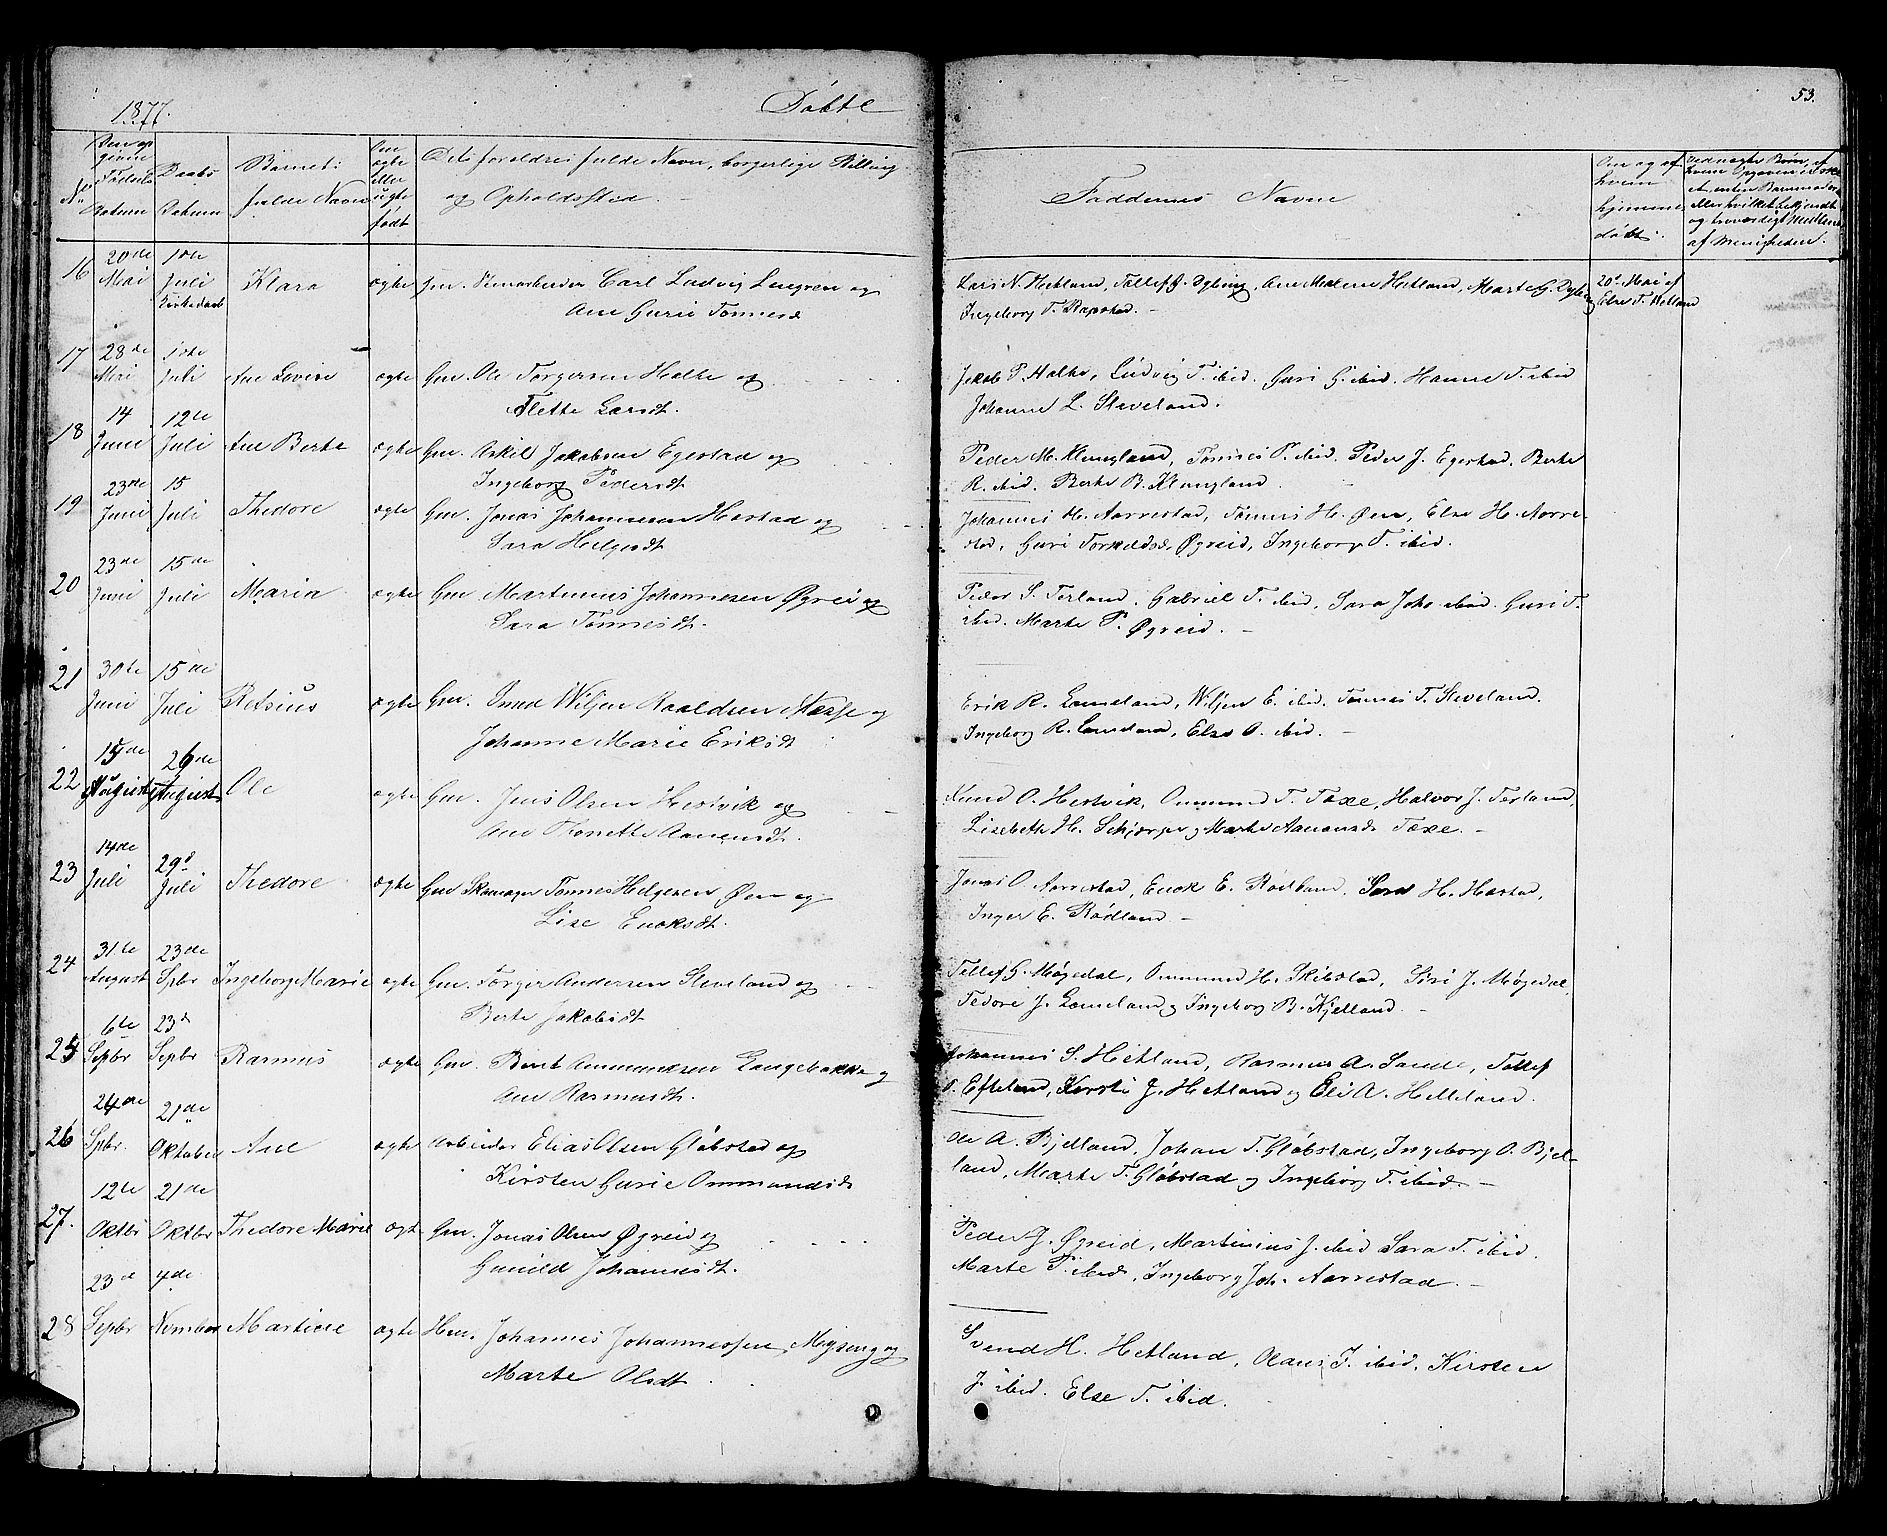 1877.
Døbte
53.
No
Den opgivne Fødsels Datum
Daabs Datum
Barnets fulde Navn
Om ægte eller uægte født
Det's forældres fulde Navn, borgerlige Stilling
og Opholdssted.
Faddernes Navne
Om og af hvem hjemmedøbt
16 20de Mai 1ste Juli Kirkedaab Klara ægte Carl Ludvig og
Ane Gurie Tønnesd
Lars N. Hetland, Tollef G. Dybing, Ane Malene Hetland, Marte G. Dybing
Ingeborg T.
20de Mai af
Else T.
17 28de Mai 1ste Juli Ane Lovise ægte Gm. Ole Torgersen Halke og
Larsdt.
Jakob T. Halke, Ludvig T. ibid. Guri G. ibid. Hanne T. ibid
Johanne L. Sleveland.
18 14 Juni 12te Juli Ane Berte ægte Gm. Askil Jakobsen Egestad og
Ingeborg Pedersdt
Peder M. Klungland, Tønnes P. ibid. Peder J. Egestad, Berte
R. ibid. Berte B. Klungland.
19 23de Juni 15 Juli Thedore ægte Gm. Jonas Johannesen Hæstad og
Sara Helgesdt
Johannes H. Aarrestad, Tønnes H. Øen, Else H. Aarre-
stad, Guri Torkeldsd, Øgreid, Ingeborg T. ibid.
20 23de Juni 15de Juli Maria ægte Gm. Martinius Johannesen Øgrei og
Sara Tønnesdt.
Peder S. Terland, Gabriel T. ibid, Sara Joh. ibid. Guri T.
ibid. Marte P. Øgreid.
21 30te Juni 15de Juli Retsius ægte Gm. Wiljen Roaldsen og
Johanne Marie Eriksdt
Erik R. Lomeland, Wiljen E. ibid. Tønnes T. Sleveland.
Ingeborg R. Lomeland, Else O. ibid.
22 15de August 26de August Ole ægte Gm. Jens Olsen Hestvik og
Ane Tonette Aanensdt.
Knud O. Hestvik, Ommund T. Tøxe, Halvor J. Terland,
Lisebeth H. Schjerpe og Marte Aanensd Tøxe.
23 14de Juli 29d Juli Thedore ægte Gm Skomager Tønnes Helgesen Øen og
Lise Enoksdt.
Jonas O. Aarrestad, Enok E. Rødland, Sara H. Hæstad,
Inger E. Rødland
24 31te August 23de Spbr Ingeborg Marie ægte Gm. Torger Andersen Sleveland og
Berte Jakobsdt
Tollef G. Møgedal, Ommund H. Skibstad, Siri J. Møgedal,
Tedore J. Lomeland og Ingeborg B. Kjelland.
25 6te Sepbr 23d Sepbr Rasmus ægte Gm. Berent Ommundsen Langebakke og
Ane Rasmusdt.
Johannes S. Hetland, Rasmus A. Sande, Tollef
O. Efteland, Kirsti J. Hetland og Eli A. Helleland.
26 24de Spbr. 21de Oktober Ane ægte Arbeider Elias Olsen Gløbstad og
Kirsten Gurie Ommundsd
Ole A. Bjelland, Johan T. Gløbstad, Ingeborg O. Bjel-
land, Marte T. Gløbstad og Ingeborg T. ibid.
27. 12te Oktbr 21de Oktbr Thedore Marie ægt Gm. Jonas Olsen Øgreid og
Gunild Johannesdt.
Peder J. Øgreid, Martinius J. ibid Sara T. ibid.
Marte P. ibid, Ingeborg Joh. Aarrestad.
28 23d Sepbr 4de Nvmber Martine ægte Hm. Johannes Johannessen Mysing og
Marte Olsdt
Svend H. Hetland, Olaus J. ibid, Kirsten
J. ibid. Else T. ibid.